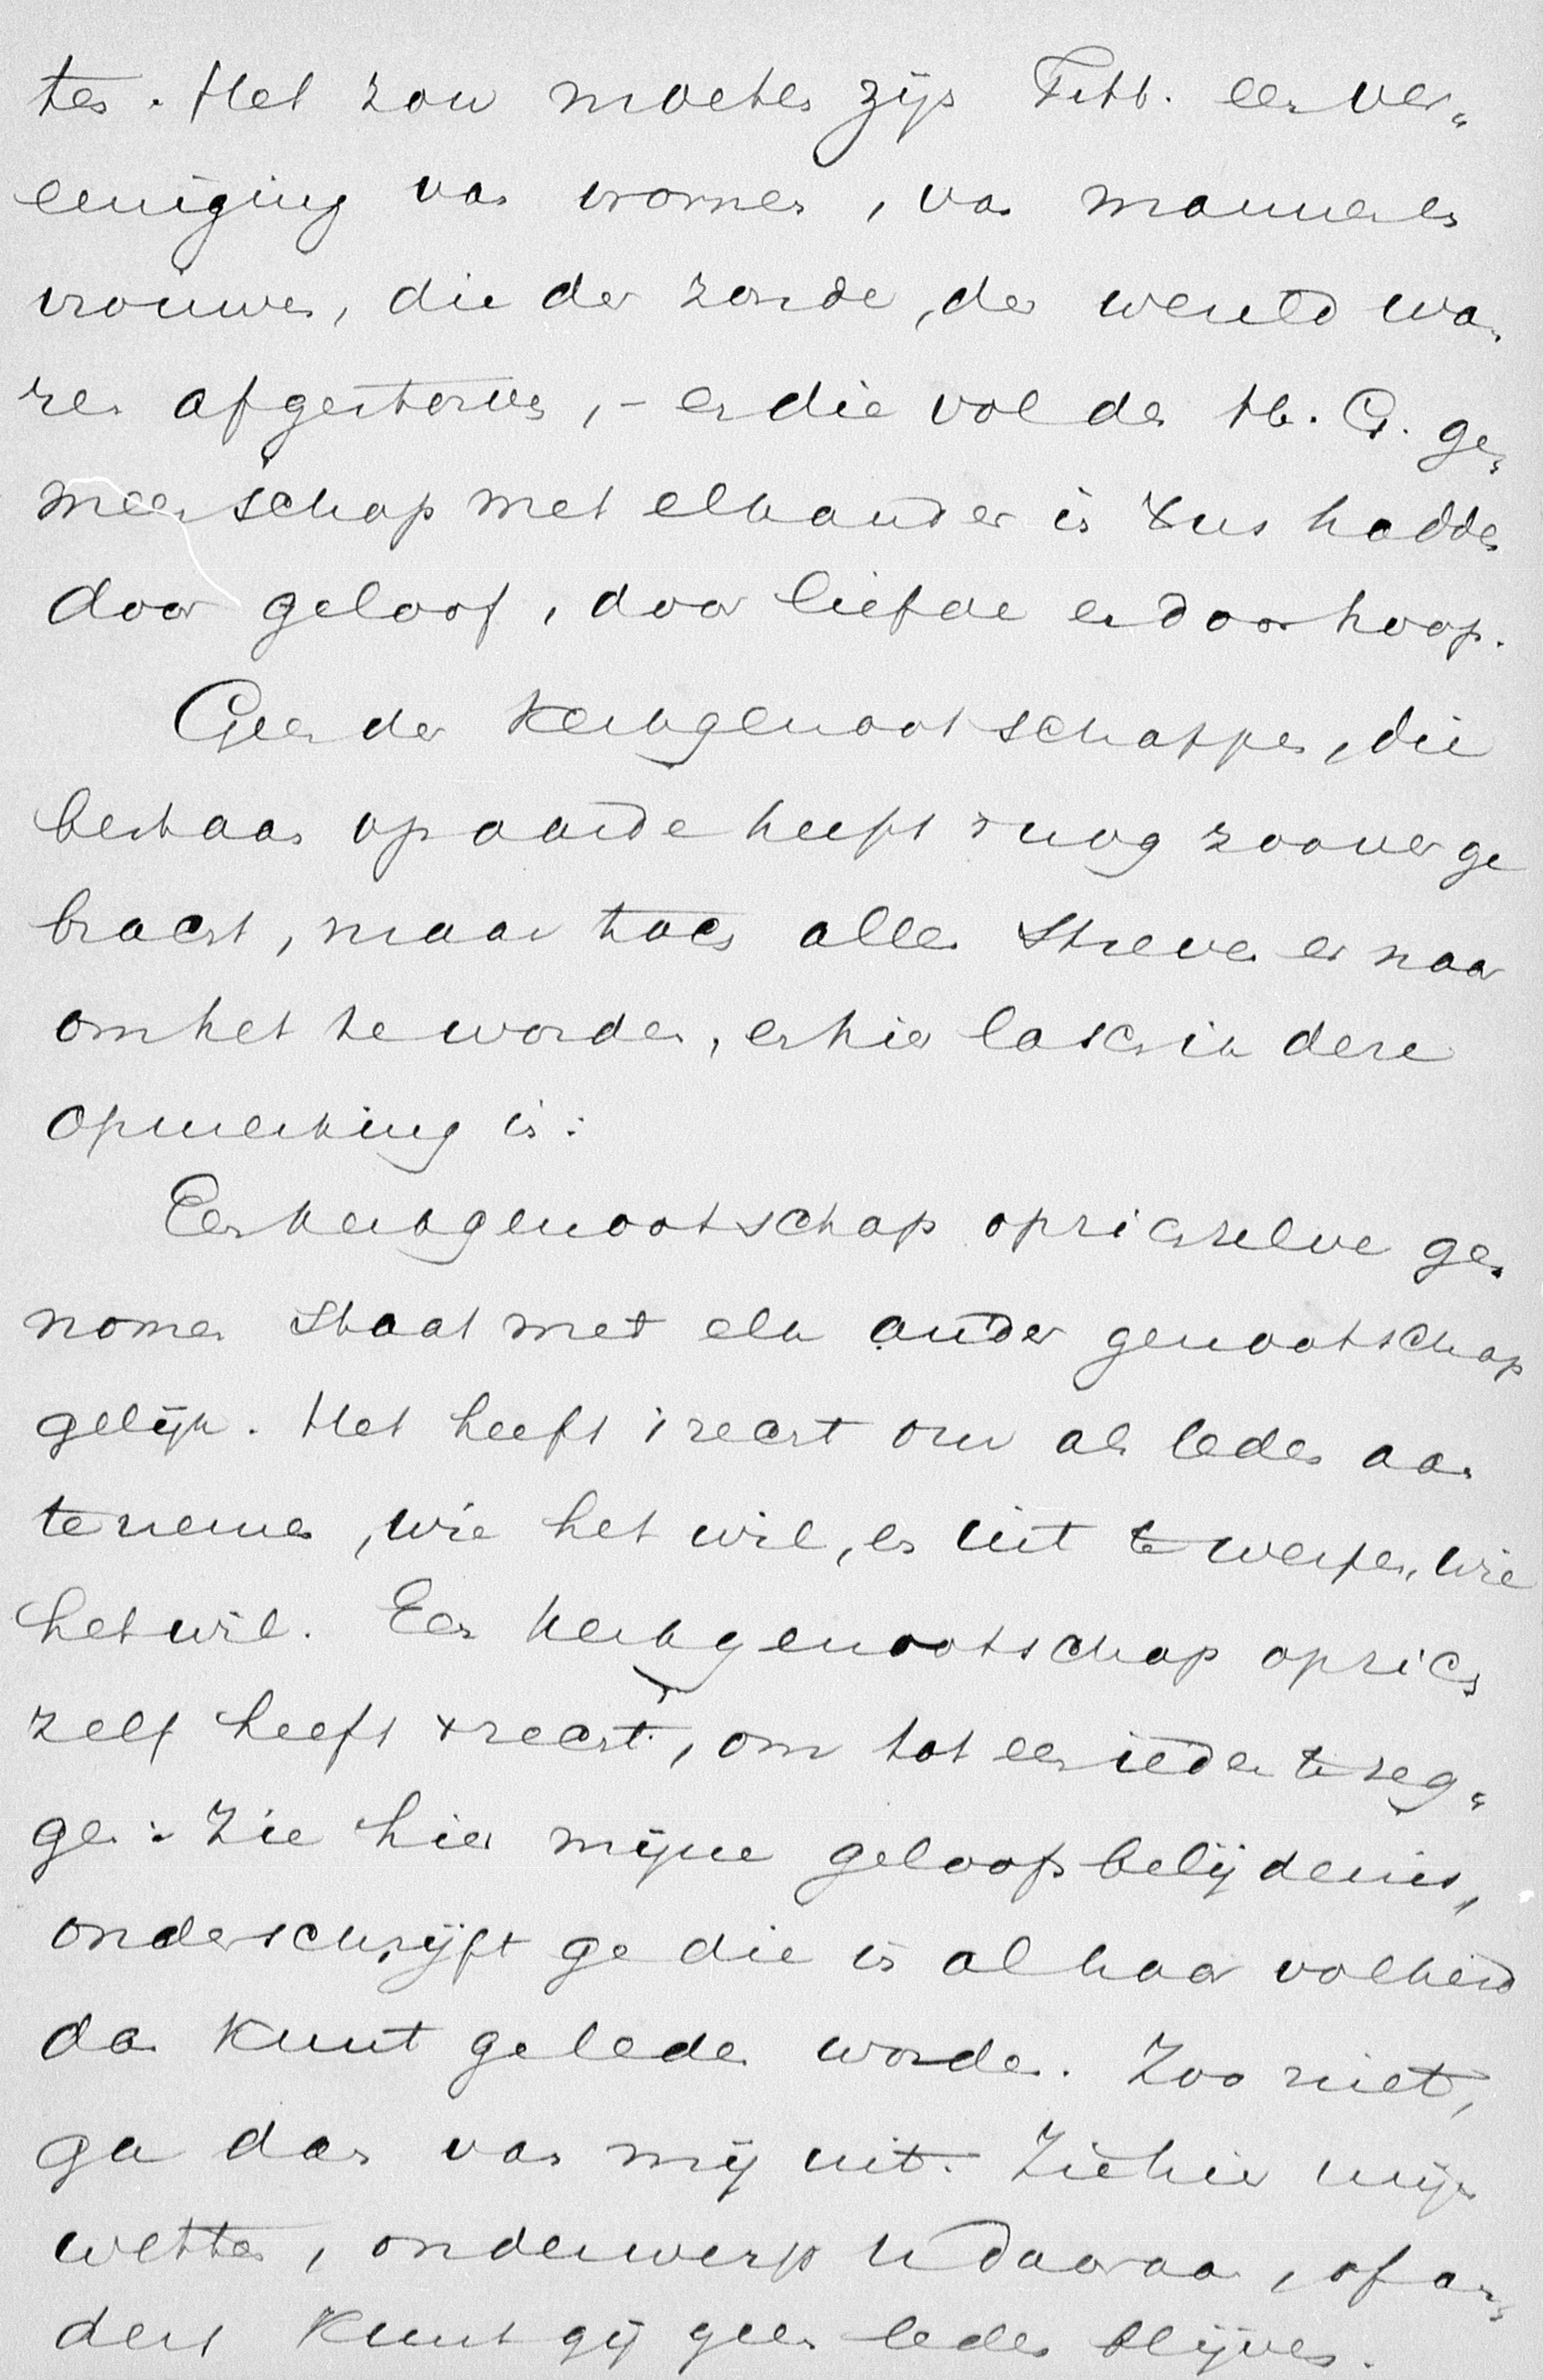 ten. Het zou moeten zijn Fitb. een ver„
eeniging van vromen, van mannen en
vrouwen, die der zonde, der wereld wa„
ren afgestorven, – en die vol des H. G. ge„
meenschap met elkander in Xus hadden
door geloof, door liefde en door hoop.
Geen der Kerkgenootschappen, die
bestaan op aarde heeft 't nog zoover ge
bracht, maar toch allen streven er naar
om het te worden, en hier lasch ik deze
opmerking in:
Een kerkgenootschap op zich zelve ge„
nomen staat met elk ander genootschap
gelijk. Het heeft 't recht om als leden aan
te nemen, wie het wil, en uit te werpen, wie
het wil. Een kerkgenootschap op zich
zelf heeft 't recht, om tot een ieder te zeg„
gen: Zie hier mijne geloofsbelijdenis,
onderschrijft ge die in al haar volheid
dan kunt ge leden worden. Zoo niet,
ga dan van mij uit. Zie hier mijn
wetten, onderwerp U daaraan, of an„
ders kunt gij geen leden blijven.